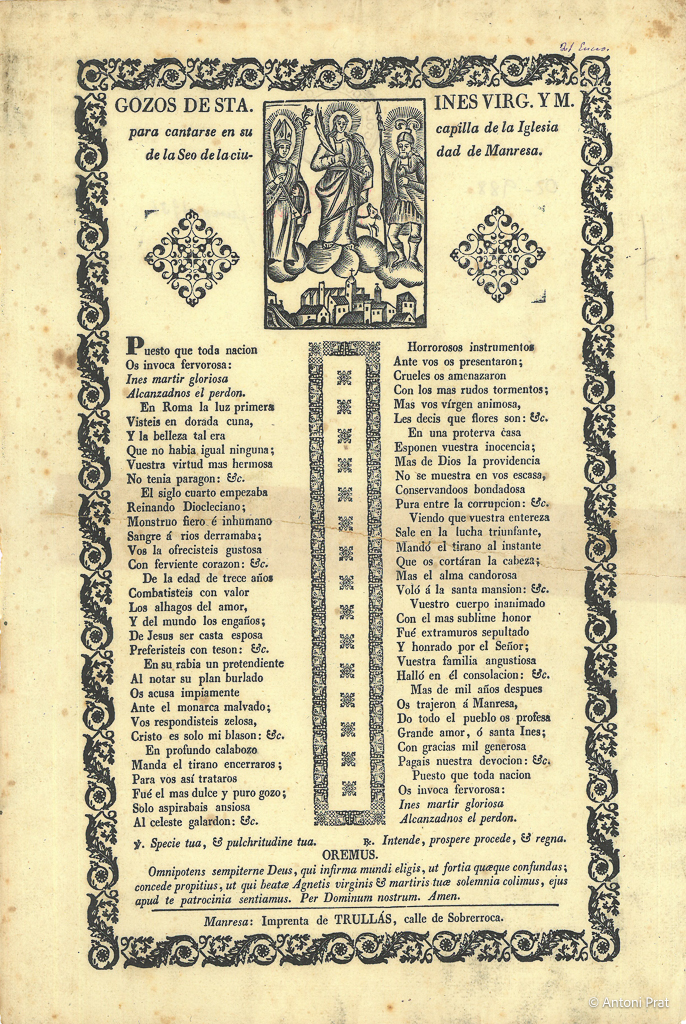 21 Enero.
GOZOS DE STA. INES VIRG. Y M.
para cantarse en su capilla de la Iglesia
de la Seo de la ciu- dad de Manresa.
Puesto que toda nacion
Os invoca fervorosa:
Ines martir gloriosa
Alcanzadnos el perdon.
En Roma la luz primera
Visteis en dorada cuna,
Y la belleza tal era
Que no habia igual ninguna;
Vuestra virtud mas hermosa
No tenia paragon: &c.
El siglo cuarto empezaba
Reinando Diocleciano;
Monstruo fiero é inhumano
Sangre á rios derramaba;
Vos la ofrecisteis gustosa
Con ferviente corazon: &c.
De la edad de trece años
Combatisteis con valor
Los alhagos del amor,
Y del mundo los engaños;
De Jesus ser casta esposa
Preferisteis con teson: &c.
En su rabia un pretendiente
Al notar su plan burlado
Os acusa impiamente
Ante el monarca malvado;
Vos respondisteis zelosa,
Cristo es solo mi blason: &c.
En profundo calabozo
Manda el tirano encerraros;
Para vos así trataros
Fué el mas dulce y puro gozo;
Solo aspirabais ansiosa
Al celeste galardon: &c.
Horrorosos instrumentos
Ante vos os presentaron;
Crueles os amenazaron
Con los mas rudos tormentos;
Mas vos vírgen animosa,
Les decis que flores son: &c.
En una proterva casa
Esponen vuestra inocencia;
Mas de Dios la providencia
No se muestra en vos escasa,
Conservandoos bondadosa
Pura entre la corrupcion: &c.
Viendo que vuestra entereza
Sale en la lucha triunfante,
Mandó el tirano al instante
Que os cortáran la cabeza;
Mas el alma candorosa
Voló á la santa mansion: &c.
Vuestro cuerpo inanimado
Con el mas subline honor
Fué extramuros sepultado
Y honrado por el Señor;
Vuestra familia angustiosa
Halló en él consolacion: &c.
Mas de mil años despues
Os trajeron á Manresa,
Do todo el pueblo os profesa
Grande amor, ó santa Ines;
Con gracias mil generosa
Pagais nuestra devocion: &c.
Puesto que toda nacion
Os invoca fervorosa:
Ines martir gloriosa
Alcanzadnos el perdon.
℣. Specie tua, & pulchritudine tua. ℟. Intende, prospere procede, & regna.
OREMUS.
Omnipotens sempiterne Deus, qui infirma mundi eligis, ut fortia quæque confundas;
concede propitius, ut qui beatæ Agnetis virginis & martiris tuæ solemnia colimus, ejus
apud te patrocinia sentiamus. Per Dominum nostrum. Amen.
Manresa: Imprenta de TRULLÁS, calle de Sobrerroca.
© Antoni Prat